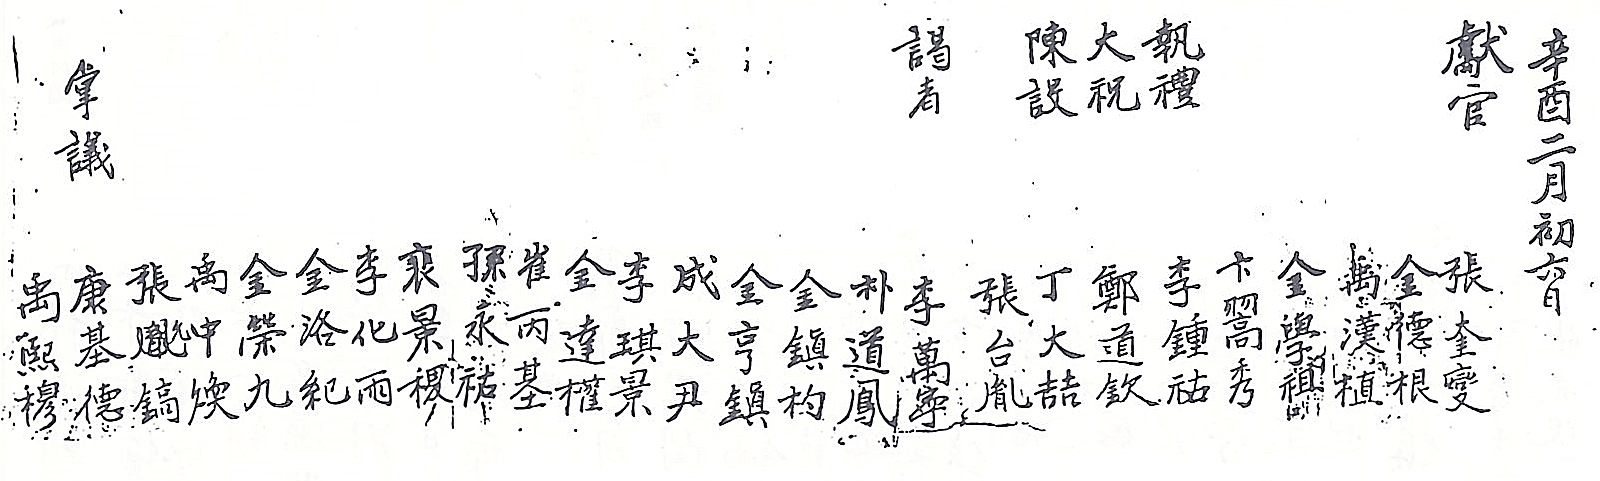 辛酉二月初六日
獻官 張奎燮
金德根
禹漢植
金學祖
卞翯秀
執禮 李鍾祜
大祝 鄭道欽
陳設 丁大喆
張台胤
謁者 李萬寧
朴道鳳
金鎭杓
金亨鎭
成大尹
李琪景
金達權
崔丙基
孫永祜
裵景稷
李化雨
金洛紀
金榮九
禹中煥
張 鎬
掌議 康基德
禹熙穆